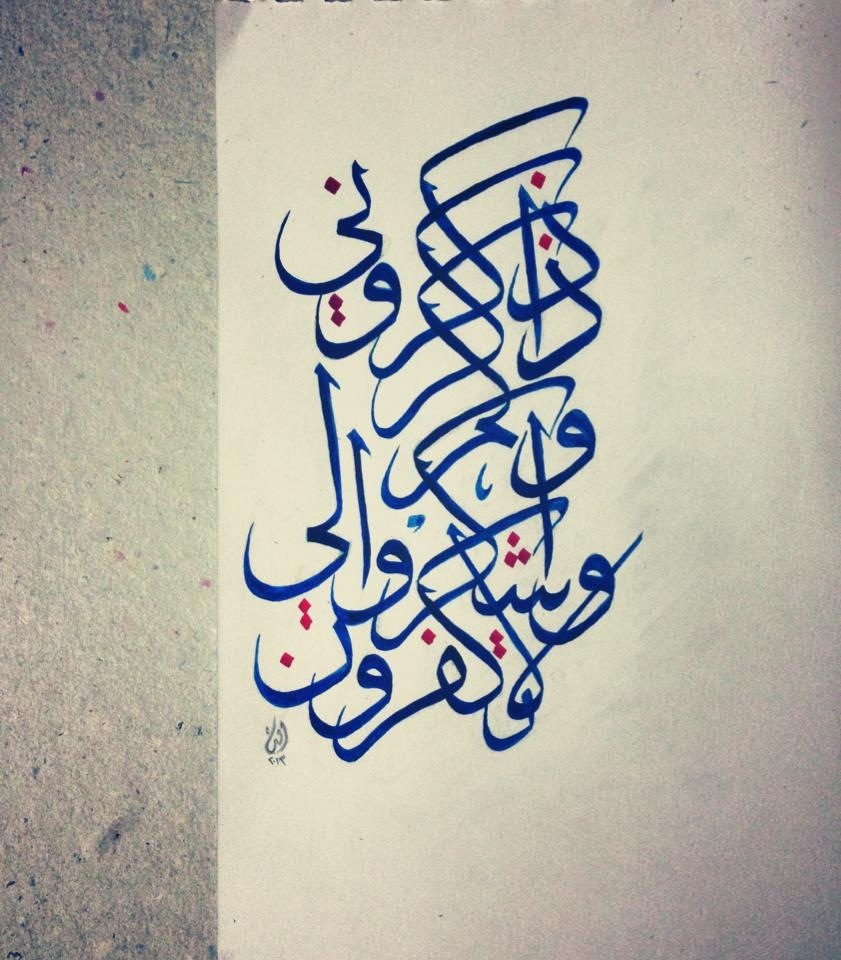 اذكروني
اذكركم
واشكروا لي
ولا تكفرون
٢٠١٣